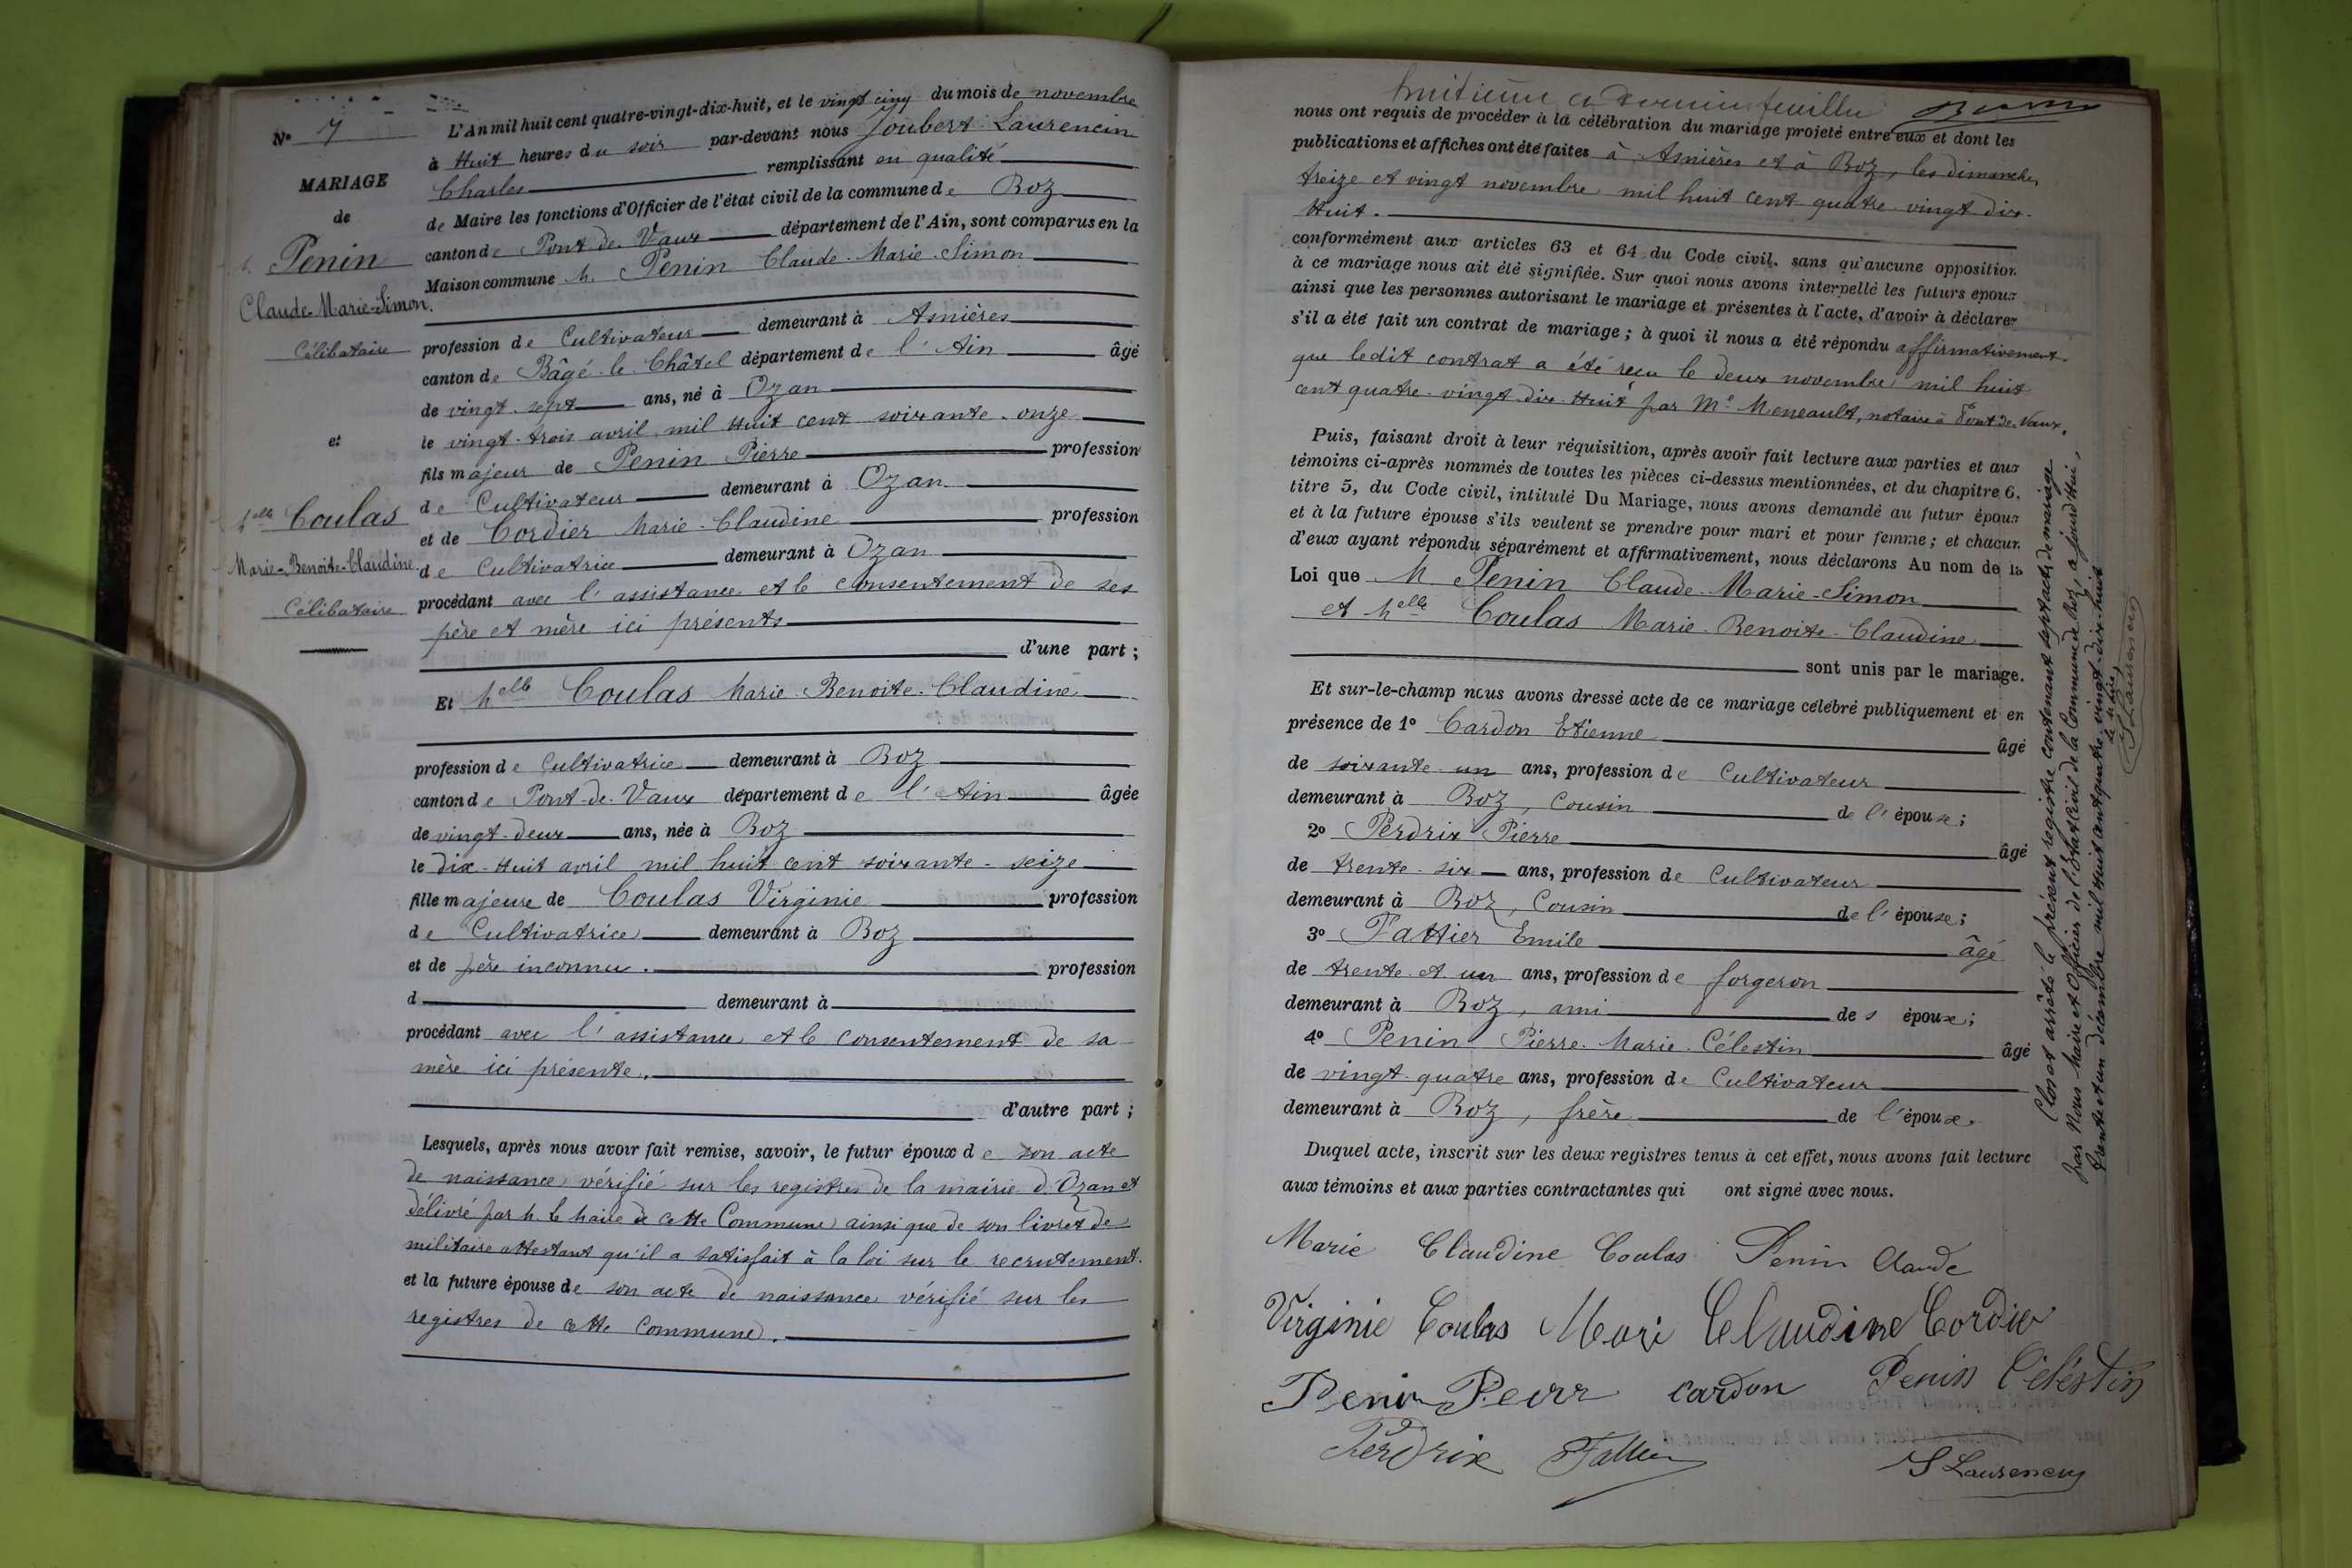 N° 7
MARIAGE
de
Penin
Claude-Marie-Simon.
Célibataire
et
Melle Coulas
Marie-Benoite-Claudine.
Célibataire
L'An mil huit cent quatre-vingt-dix-huit, et le vingt cinq du mois de novembre
à Huit heures du soir par-devant nous Joubert-Laurencin
Charles remplissant en qualité
de Maire les fonctions d'Officier de l'état civil de la commune de Boz
canton de Pont-de-Vaux département de l'Ain, sont comparus en la
Maison commune M. Penin Claude-Marie-Simon
profession de Cultivateur demeurant à Asnières
canton de Bâgé-le-Châtel département de l'Ain âgé
de vingt-sept ans, né à Ozan
le vingt-trois avril mil Huit cent soixante-onze
fils majeur de Penin Pierre profession
de Cultivateur demeurant à Ozan
et de Cordier Marie-Claudine profession
de Cultivatrice demeurant à Ozan
procédant avec l'assistance et le consentement de ses
père et mère ici présents
d'une part ;
Et Melle Coulas Marie-Benoite-Claudine
profession de Cultivatrice demeurant à Boz
canton de Pont-de-Vaux département de l'Ain âgée
de vingt-deux ans, née à Boz
le dix-Huit avril mil huit cent soixante-seize
fille majeure de Coulas Virginie profession
de Cultivatrice demeurant à Boz
et de père inconnu. profession
d demeurant à
procédant avec l'assistance et le consentement de sa
mère ici présente.
d'autre part ;
Lesquels, après nous avoir fait remise, savoir, le futur époux de son acte
de naissance vérifié sur les registres de la mairie d'Ozan et
délivré par M. le Maire de cette Commune ainsi que de son livret de
militaire attestant qu'il a satisfait à la loi sur le recrutement.
et la future épouse de son acte de naissance vérifié sur les
registres de cette commune.
huitième et dernier feuillet
nous ont requis de procéder à la célébration du mariage projeté entre eux et dont les
publications et affiches ont été faites à Asnières et à Boz, les dimanches
treize et vingt novembre mil huit cent quatre-vingt-dix-
Huit.
conformément aux articles 63 et 64 du Code civil, sans qu'aucune opposition
à ce mariage nous ait été signifiée. Sur quoi nous avons interpellé les futurs epoux
ainsi que les personnes autorisant le mariage et présentes à l'acte, d'avoir à déclarer
s'il a été fait un contrat de mariage ; à quoi il nous a été répondu affirmativement
que ledit contrat a été reçu le deux novembre mil huit
cent quatre-vingt-dix-Huit par Me Meneault, notaire à Pont-de-Vaux.
Puis, faisant droit à leur réquisition, après avoir fait lecture aux parties et aux
témoins ci-après nommés de toutes les pièces ci-dessus mentionnées, et du chapitre 6,
titre 5, du Code civil, intitulé Du Mariage, nous avons demandé au futur époux
et à la future épouse s'ils veulent se prendre pour mari et pour femme ; et chacun
d'eux ayant répondu séparément et affirmativement, nous déclarons Au nom de la
Loi que M. Penin Claude-Marie-Simon
et Melle Coulas Marie-Benoite-Claudine
sont unis par le mariage.
Et sur-le-champ nous avons dressé acte de ce mariage célébré publiquement et en
présence de 1° Cardon Etienne âgé
de soixante-un ans, profession de Cultivateur
demeurant à Boz, Cousin de l'épouse ;
2° Perdrix Pierre âgé
de trente-six ans, profession de Cultivateur
demeurant à Boz, Cousin de l'épouse ;
3° Fattier Emile âgé
de trente et un ans, profession de forgeron
demeurant à Boz, ami des époux ;
4° Penin Pierre-Marie-Célestin âgé
de vingt-quatre ans, profession de Cultivateur
demeurant à Boz, frère de l'époux.
Duquel acte, inscrit sur les deux registres tenus à cet effet, nous avons fait lecture
aux témoins et aux parties contractantes qui ont signé avec nous.
Marie Claudine Coulas Penin Claude
Virginie Coulas Mari Celaudine Cordier
Penin Peirr cardon Penin Célestin
Perdrix Fattier
J Laurencin
Clos et arrêté le présent registre contenant sept actes de mariage
par Nous Maire et Officier de l'Etat Civil de la Commune de Boz, aujourd'hui,
trente et un décembre mil Huit cent quatre-vingt-dix-huit
Le Maire,
J Laurencin